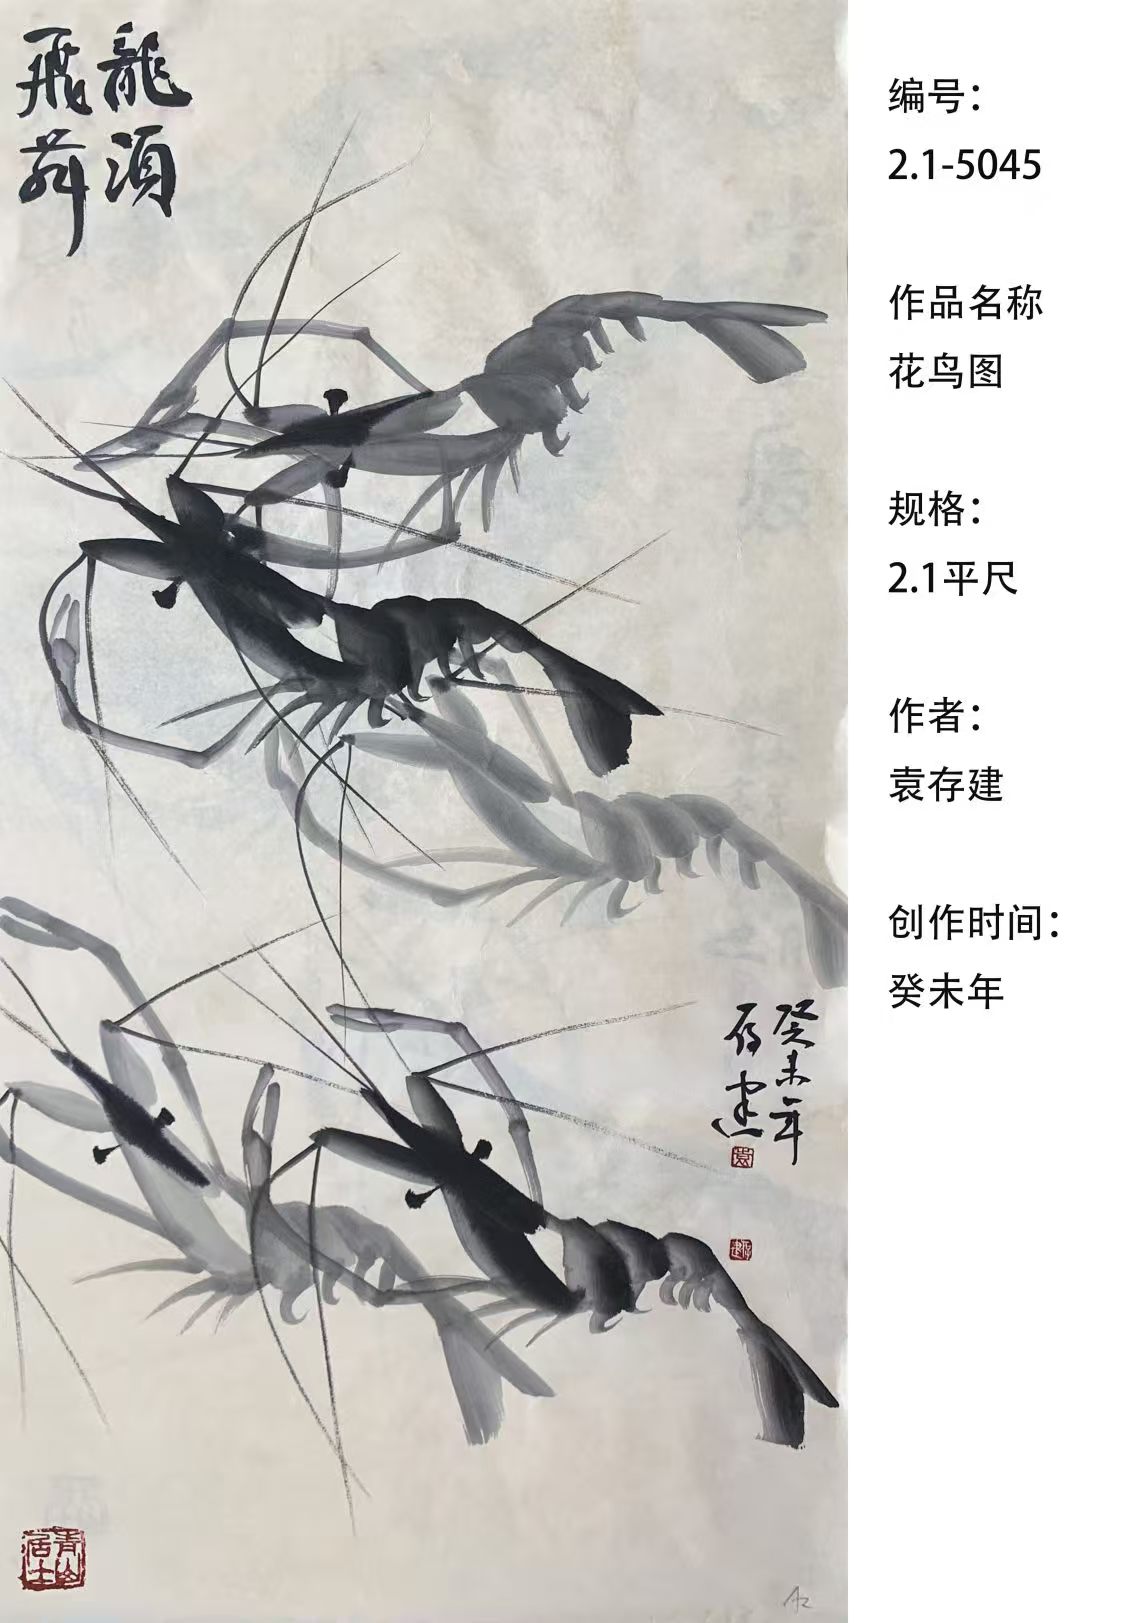 龍須
飛舞
癸未年
存建
袁
存建
青山
居士
编号：
2.1-5045
作品名称
花鸟图
规格：
2.1平尺
作者：
袁存建
创作时间：
癸未年